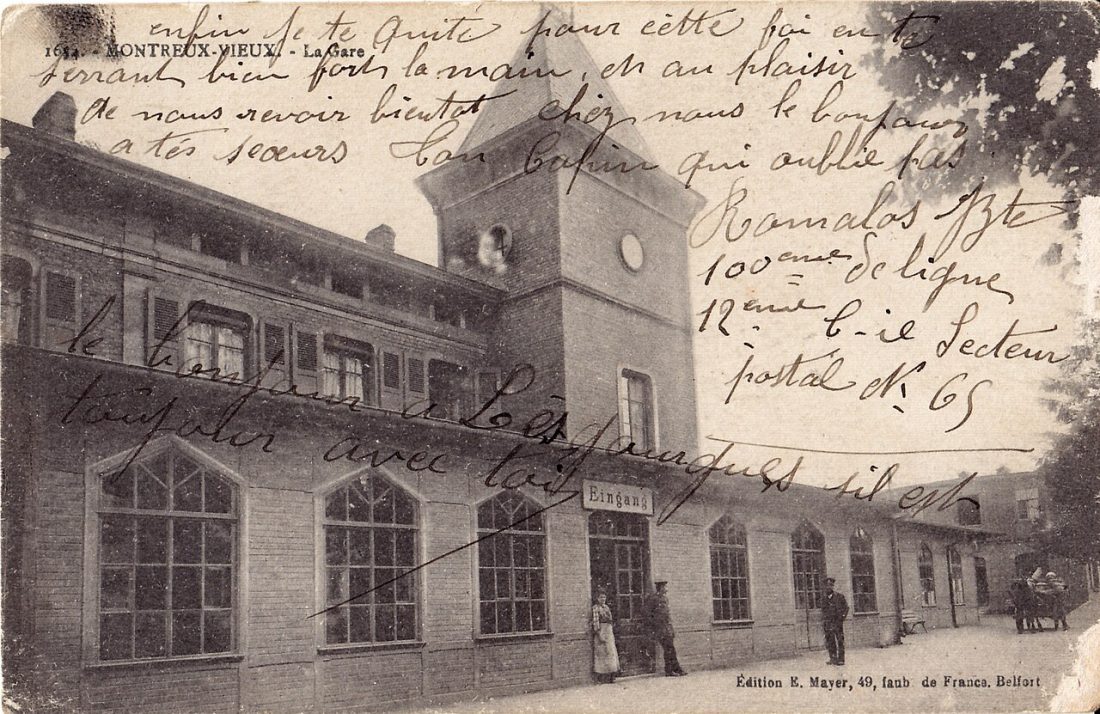 1654. - MONTREUX-VIEUX. - La Gare
enfin je te quite pour cette foi en te
serrant bien fort la main, et au plaisir
de nous revoir bientot chez nous le bonjour
a tes seœurs ton Copin qui oublie pas
Ramalos Bte
100eme de ligne
12eme C-ie Secteur
postal N. 65
le bonjour a Lesgourgues sil est
toujour avec toi
Eingang
Édition E. Mayer, 49, faub de France. Belfort